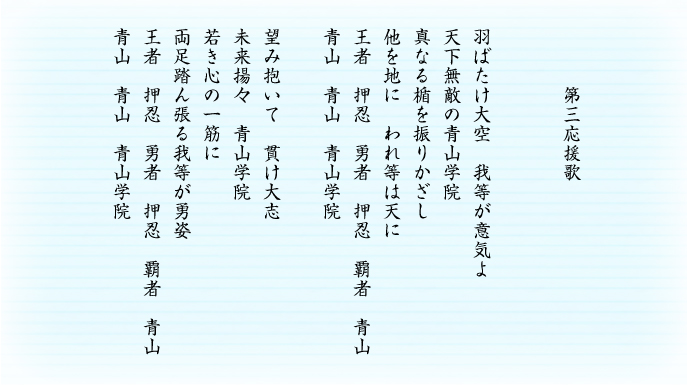 第三応援歌
羽ばたけ大空　我等が意気よ
天下無敵の青山学院
真なる楯を振りかざし
他を地に　われ等は天に
王者　押忍　勇者　押忍　覇者　青山
青山　青山　青山学院
望み抱いて　貫け大志
未来揚々　青山学院
若き心の一筋に
両足踏ん張る我等が勇姿
王者　押忍　勇者　押忍　覇者　青山
青山　青山　青山学院